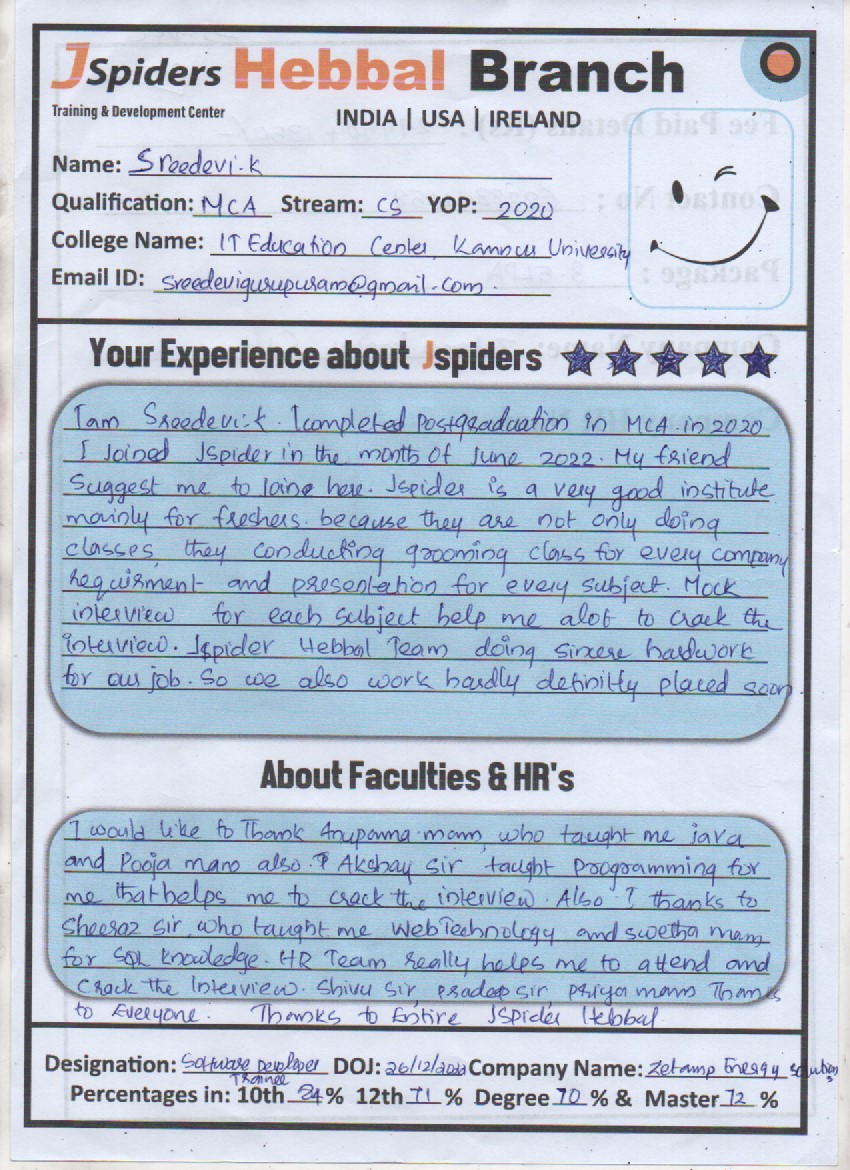 JSpiders Hebbal Branch
Training & Development Center
INDIA | USA | IRELAND
Name: Sreedevi.k
Qualification: MCA Stream: CS YOP: 2020
College Name: IT Education Center, Kannur University
Email ID: sreedevigurupuram@gmail.com.
Your Experience about Jspiders
I am Sreedevi.k. I completed Postgraduation in MCA in 2020
I Joined JSpider in the month of June 2022. My friend
Suggest me to Joine here. Jspider is a very good institute
mainly for freshers. because they are not only doing
classes, they conducting grooming class for every company
requirment and presentation for every subject. Mock
interview for each subject help me alot to crack the
interview. Jspider Hebbal Team doing sincere hardwork
for our job. So we also work hardly definitly placed soon.
About Faculties & HR's
I would like to Thank Anupama mam, who taught me java
and Pooja mam also. Akshay sir taught programming for
me that helps me to crack the interview. Also I thanks to
Sheeraz sir, who taught me WebTechnology and swetha mam
for SQL knowledge. HR Team really helps me to attend and
Crack the Interview. Shivu sir, pradeep sir, priya mam Thanks
to Everyone. Thanks to Entire JSpider Hebbal.
Designation: Software Developer Trainee DOJ: 26/12/2022 Company Name: Zetamp Energy solutions
Percentages in: 10th 84% 12th 71 % Degree 70 % & Master 72 %